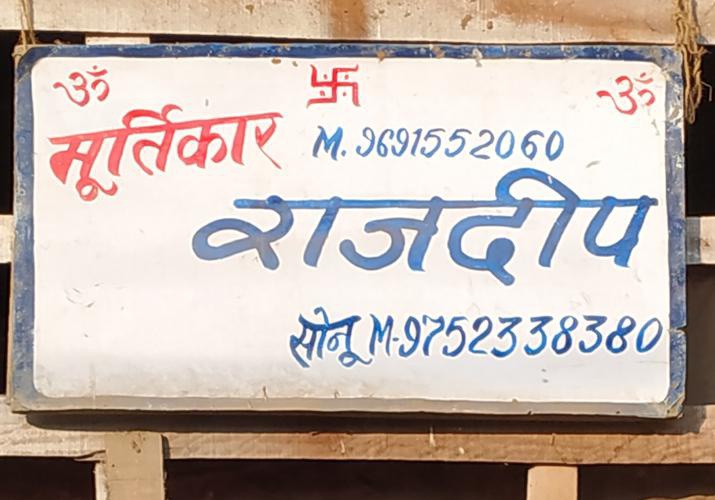 ॐ 卐 ॐ
मूर्तिकार M. 9691552060
राजदीप
सोनू M-9752338380